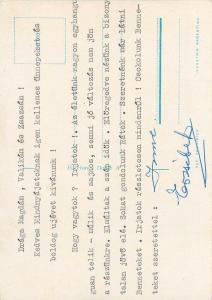 Drága Magdán , Palikán és Zsazsán !
Kedves Mindnyájatoknak igen kellemes ünnepeket és
boldog ujévet kivánunk !
Hogy vagytok ? Irjatok !. Az életünk nagyon egyhangu
guan telik - mulik és sajnos, semmi jó változás nem jön
a részünkre. Elmultak a szép idők . Előregedve nézünk a bizony
talan jövő elé. Sokat gondolunk Rátok . Szeretnénk már látni
Benneteket . Irjatok részletesen mindenről ! Csokolunk Benne-
teket szeretettel :
Erzsébet